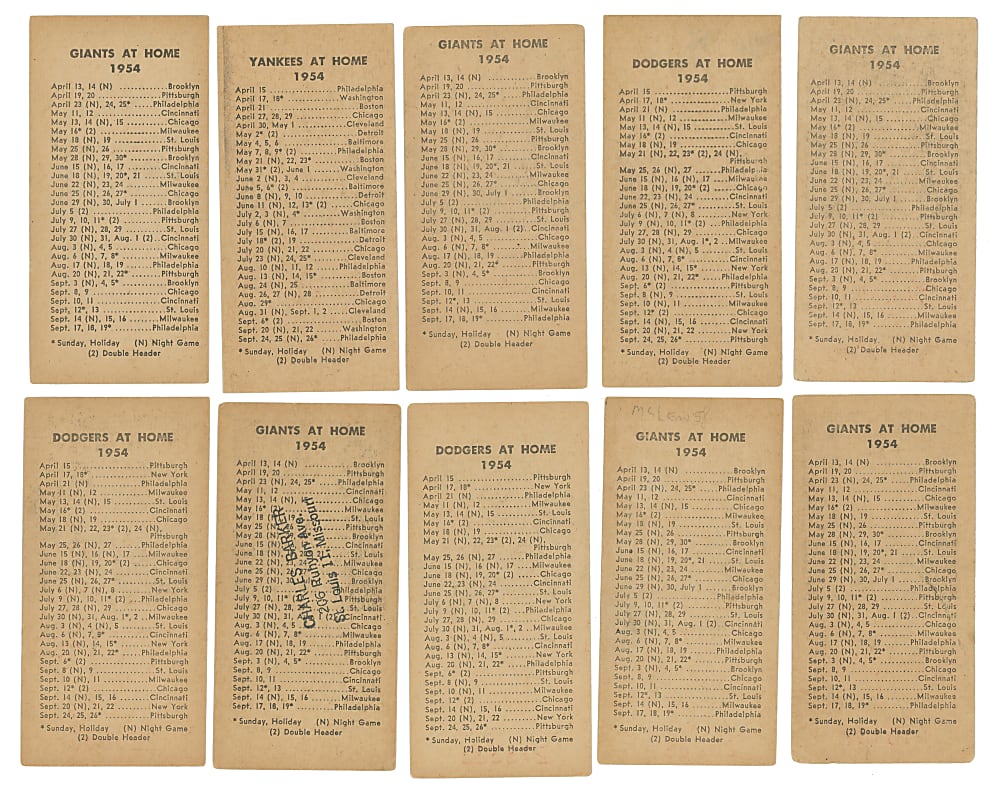 GIANTS AT HOME
1954
April 13, 14 (N) ..... Brooklyn
April 19, 20 ..... Pittsburgh
April 23 (N), 24, 25* ..... Philadelphia
May 11, 12 ..... Cincinnati
May 13, 14 (N), 15 ..... Chicago
May 16* (2) ..... Milwaukee
May 18 (N), 19 ..... St. Louis
May 25 (N), 26 ..... Pittsburgh
May 28 (N), 29, 30* ..... Brooklyn
June 15 (N), 16, 17 ..... Cincinnati
June 18 (N), 19, 20*, 21 ..... St. Louis
June 22 (N), 23, 24 ..... Milwaukee
June 25 (N), 26, 27* ..... Chicago
June 29 (N), 30, July 1 ..... Brooklyn
July 5 (2) ..... Philadelphia
July 9, 10, 11* (2) ..... Pittsburgh
July 27 (N), 28, 29 ..... St. Louis
July 30 (N), 31, Aug. 1 (2) ..... Cincinnati
Aug. 3 (N), 4, 5 ..... Chicago
Aug. 6 (N), 7, 8* ..... Milwaukee
Aug. 17 (N), 18, 19 ..... Philadelphia
Aug. 20 (N), 21, 22* ..... Pittsburgh
Sept. 3 (N), 4, 5* ..... Brooklyn
Sept. 8, 9 ..... Chicago
Sept. 10, 11 ..... Cincinnati
Sept, 12*, 13 ..... St. Louis
Sept. 14 (N), 15, 16 ..... Milwaukee
Sept. 17, 18, 19* ..... Philadelphia
* Sunday, Holiday (N) Night Game
(2) Double Header
YANKEES AT HOME
1954
April 15 ..... Philadelphia
April 17, 18* ..... Washington
April 21 ..... Boston
April 27, 28, 29 ..... Chicago
April 30, May 1 ..... Cleveland
May 2* (2) ..... Detroit
May 4, 5, 6 ..... Baltimore
May 7, 8, 9* (2) ..... Philadelphia
May 21 (N), 22, 23* ..... Boston
May 31* (2), June 1 ..... Washington
June 2 (N), 3, 4 ..... Cleveland
June 5, 6* (2) ..... Baltimore
June 8 (N), 9, 10 ..... Detroit
June 11 (N), 12, 13* (2) ..... Chicago
July 2, 3 (N), 4* ..... Washington
July 6 (N), 7 ..... Boston
July 15 (N), 16, 17 ..... Baltimore
July 18* (2), 19 ..... Detroit
July 20 (N), 21, 22 ..... Chicago
July 23 (N), 24, 25* ..... Cleveland
Aug. 10 (N), 11, 12 ..... Philadelphia
Aug. 13 (N), 14, 15* ..... Boston
Aug. 24 (N), 25 ..... Baltimore
Aug. 26, 27 (N), 28 ..... Detroit
Aug. 29* ..... Chicago
Aug. 31 (N), Sept. 1, 2 ..... Cleveland
Sept. 6* (2) ..... Boston
Sept. 20 (N), 21, 22 ..... Washington
Sept. 24, 25 (N), 26* ..... Philadelphia
* Sunday, Holiday (N) Night Game
(2) Double Header
GIANTS AT HOME
1954
April 13, 14 (N) ..... Brooklyn
April 19, 20 ..... Pittsburgh
April 23 (N), 24, 25* ..... Philadelphia
May 11, 12 ..... Cincinnati
May 13, 14 (N), 15 ..... Chicago
May 16* (2) ..... Milwaukee
May 18 (N), 19 ..... St. Louis
May 25 (N), 26 ..... Pittsburgh
May 28 (N), 29, 30* ..... Brooklyn
June 15 (N), 16, 17 ..... Cincinnati
June 18 (N), 19, 20*, 21 ..... St. Louis
June 22 (N), 23, 24 ..... Milwaukee
June 25 (N), 26, 27* ..... Chicago
June 29 (N), 30, July 1 ..... Brooklyn
July 5 (2) ..... Philadelphia
July 9, 10, 11* (2) ..... Pittsburgh
July 27 (N), 28, 29 ..... St. Louis
July 30 (N), 31, Aug. 1 (2) ..... Cincinnati
Aug. 3 (N), 4, 5 ..... Chicago
Aug. 6 (N), 7, 8* ..... Milwaukee
Aug. 17 (N), 18, 19 ..... Philadelphia
Aug. 20 (N), 21, 22* ..... Pittsburgh
Sept. 3 (N), 4, 5* ..... Brooklyn
Sept. 8, 9 ..... Chicago
Sept. 10, 11 ..... Cincinnati
Sept. 12*, 13 ..... St. Louis
Sept. 14 (N), 15, 16 ..... Milwaukee
Sept. 17, 18, 19* ..... Philadelphia
* Sunday, Holiday (N) Night Game
(2) Double Header
DODGERS AT HOME
1954
April 15 ..... Pittsburgh
April 17, 18* ..... New York
April 21 (N) ..... Philadelphia
May 11 (N), 12 ..... Milwaukee
May 13, 14 (N), 15 ..... St. Louis
May 16* (2) ..... Cincinnati
May 18 (N), 19 ..... Chicago
May 21 (N), 22, 23* (2), 24 (N),
Pittsburgh
May 25, 26 (N), 27 ..... Philadelphia
June 15 (N), 16 (N), 17 ..... Milwaukee
June 18 (N), 19, 20* (2) ..... Chicago
June 22, 23 (N), 24 ..... Cincinnati
June 25 (N), 26, 27* ..... St. Louis
July 6 (N), 7 (N), 8 ..... New York
July 9 (N), 10, 11* (2) ..... Philadelphia
July 27, 28 (N), 29 ..... Chicago
July 30 (N), 31, Aug. 1*, 2 ..... Milwaukee
Aug. 3 (N), 4 (N), 5 ..... St. Louis
Aug. 6 (N), 7, 8* ..... Cincinnati
Aug. 13 (N), 14, 15* ..... New York
Aug. 20 (N), 21, 22* ..... Philadelphia
Sept. 6* (2) ..... Pittsburgh
Sept. 8 (N), 9 ..... St. Louis
Sept. 10 (N), 11 ..... Milwaukee
Sept. 12* (2) ..... Chicago
Sept. 14 (N), 15, 16 ..... Cincinnati
Sept. 20 (N), 21, 22 ..... New York
Sept. 24, 25, 26* ..... Pittsburgh
* Sunday, Holiday (N) Night Game
(2) Double Header
GIANTS AT HOME
1954
April 13, 14 (N) ..... Brooklyn
April 19, 20 ..... Pittsburgh
April 23 (N), 24, 25* ..... Philadelphia
May 11, 12 ..... Cincinnati
May 13, 14 (N), 15 ..... Chicago
May 16* (2) ..... Milwaukee
May 18 (N), 19 ..... St. Louis
May 25 (N), 26 ..... Pittsburgh
May 28 (N), 29, 30* ..... Brooklyn
June 15 (N), 16, 17 ..... Cincinnati
June 18 (N), 19, 20*, 21 ..... St. Louis
June 22 (N), 23, 24 ..... Milwaukee
June 25 (N), 26, 27* ..... Chicago
June 29 (N), 30, July 1 ..... Brooklyn
July 5 (2) ..... Philadelphia
July 9, 10, 11* (2) ..... Pittsburgh
July 27 (N), 28, 29 ..... St. Louis
July 30 (N), 31, Aug. 1 (2) ..... Cincinnati
Aug. 3 (N), 4, 5 ..... Chicago
Aug. 6 (N), 7, 8* ..... Milwaukee
Aug. 17 (N), 18, 19 ..... Philadelphia
Aug. 20 (N), 21, 22* ..... Pittsburgh
Sept. 3 (N), 4, 5* ..... Brooklyn
Sept. 8, 9 ..... Chicago
Sept. 10, 11 ..... Cincinnati
Sept. 12*, 13 ..... St. Louis
Sept. 14 (N), 15, 16 ..... Milwaukee
Sept. 17, 18, 19* ..... Philadelphia
* Sunday, Holiday (N) Night Game
(2) Double Header
DODGERS AT HOME
1954
April 15 ..... Pittsburgh
April 17, 18* ..... New York
April 21 (N) ..... Philadelphia
May 11 (N), 12 ..... Milwaukee
May 13, 14 (N), 15 ..... St. Louis
May 16* (2) ..... Cincinnati
May 18 (N), 19 ..... Chicago
May 21 (N), 22, 23* (2), 24 (N),
Pittsburgh
May 25, 26 (N), 27 ..... Philadelphia
June 15 (N), 16 (N), 17 ..... Milwaukee
June 18 (N), 19, 20* (2) ..... Chicago
June 22, 23 (N), 24 ..... Cincinnati
June 25 (N), 26, 27* ..... St. Louis
July 6 (N), 7 (N), 8 ..... New York
July 9 (N), 10, 11* (2) ..... Philadelphia
July 27, 28 (N), 29 ..... Chicago
July 30 (N), 31, Aug. 1*, 2 ..... Milwaukee
Aug. 3 (N), 4 (N), 5 ..... St. Louis
Aug. 6 (N), 7, 8* ..... Cincinnati
Aug. 13 (N), 14, 15* ..... New York
Aug. 20 (N), 21, 22* ..... Philadelphia
Sept. 6* (2) ..... Pittsburgh
Sept. 8 (N), 9 ..... St. Louis
Sept. 10 (N), 11 ..... Milwaukee
Sept. 12* (2) ..... Chicago
Sept. 14 (N), 15, 16 ..... Cincinnati
Sept. 20 (N), 21, 22 ..... New York
Sept. 24, 25, 26* ..... Pittsburgh
* Sunday, Holiday (N) Night Game
(2) Double Header
GIANTS AT HOME
1954
April 13, 14 (N) ..... Brooklyn
April 19, 20 ..... Pittsburgh
April 23 (N), 24, 25* ..... Philadelphia
May 11, 12 ..... Cincinnati
May 13, 14 (N), ..... Chicago
May 16* ..... Milwaukee
May 18 (N), 19 ..... St. Louis
May 25 (N), ..... Pittsburgh
May 28 (N), ..... Brooklyn
June 15 (N), ..... Cincinnati
June 18 (N), ..... St. Louis
June 22 (N), ..... Milwaukee
June 25 (N), ..... Chicago
June 29 (N), 30, ..... Brooklyn
July 5 (2) ..... Philadelphia
July 9, 10, 11* ..... Pittsburgh
July 27 (N), 28, ..... St. Louis
July 30 (N), 31, ..... Cincinnati
Aug. 3 (N), 4, 5 ..... Chicago
Aug. 6 (N), 7, 8* ..... Milwaukee
Aug. 17 (N), 18, 19 ..... Philadelphia
Aug. 20 (N), 21, 22* ..... Pittsburgh
Sept. 3 (N), 4, 5* ..... Brooklyn
Sept. 8, 9 ..... Chicago
Sept. 10, 11 ..... Cincinnati
Sept. 12*, 13 ..... St. Louis
Sept. 14 (N), 15, 16 ..... Milwaukee
Sept. 17, 18, 19* ..... Philadelphia
* Sunday, Holiday (N) Night Game
(2) Double Header
CHARLES BARKER
Runyon Ave.
St. Louis Missouri
DODGERS AT HOME
1954
April 15 ..... Pittsburgh
April 17, 18* ..... New York
April 21 (N) ..... Philadelphia
May 11 (N), 12 ..... Milwaukee
May 13, 14 (N), 15 ..... St. Louis
May 16* (2) ..... Cincinnati
May 18 (N), 19 ..... Chicago
May 21 (N), 22, 23* (2), 24 (N),
Pittsburgh
May 25, 26 (N), 27 ..... Philadelphia
June 15 (N), 16 (N), 17 ..... Milwaukee
June 18 (N), 19, 20* (2) ..... Chicago
June 22, 23 (N), 24 ..... Cincinnati
June 25 (N), 26, 27* ..... St. Louis
July 6 (N), 7 (N), 8 ..... New York
July 9 (N), 10, 11* (2) ..... Philadelphia
July 27, 28 (N), 29 ..... Chicago
July 30 (N), 31, Aug. 1*, 2 ..... Milwaukee
Aug. 3 (N), 4 (N), 5 ..... St. Louis
Aug. 6 (N), 7, 8* ..... Cincinnati
Aug. 13 (N), 14, 15* ..... New York
Aug. 20 (N), 21, 22* ..... Philadelphia
Sept. 6* (2) ..... Pittsburgh
Sept. 8 (N), 9 ..... St. Louis
Sept. 10 (N), 11 ..... Milwaukee
Sept. 12* (2) ..... Chicago
Sept. 14 (N), 15, 16 ..... Cincinnati
Sept. 20 (N), 21, 22 ..... New York
Sept. 24, 25, 26* ..... Pittsburgh
* Sunday, Holiday (N) Night Game
(2) Double Header
GIANTS AT HOME
1954
April 13, 14 (N) ..... Brooklyn
April 19, 20 ..... Pittsburgh
April 23 (N), 24, 25* ..... Philadelphia
May 11, 12 ..... Cincinnati
May 13, 14 (N), 15 ..... Chicago
May 16* (2) ..... Milwaukee
May 18 (N), 19 ..... St. Louis
May 25 (N), 26 ..... Pittsburgh
May 28 (N), 29, 30* ..... Brooklyn
June 15 (N), 16, 17 ..... Cincinnati
June 18 (N), 19, 20*, 21 ..... St. Louis
June 22 (N), 23, 24 ..... Milwaukee
June 25 (N), 26, 27* ..... Chicago
June 29 (N), 30, July 1 ..... Brooklyn
July 5 (2) ..... Philadelphia
July 9, 10, 11* (2) ..... Pittsburgh
July 27 (N), 28, 29 ..... St. Louis
July 30 (N), 31, Aug. 1 (2) ..... Cincinnati
Aug. 3 (N), 4, 5 ..... Chicago
Aug. 6 (N), 7, 8* ..... Milwaukee
Aug. 17 (N), 18, 19 ..... Philadelphia
Aug. 20 (N), 21, 22* ..... Pittsburgh
Sept. 3 (N), 4, 5* ..... Brooklyn
Sept. 8, 9 ..... Chicago
Sept. 10, 11 ..... Cincinnati
Sept. 12*, 13 ..... St. Louis
Sept. 14 (N), 15, 16 ..... Milwaukee
Sept. 17, 18, 19* ..... Philadelphia
* Sunday, Holiday (N) Night Game
(2) Double Header
GIANTS AT HOME
1954
April 13, 14 (N) ..... Brooklyn
April 19, 20 ..... Pittsburgh
April 23 (N), 24, 25* ..... Philadelphia
May 11, 12 ..... Cincinnati
May 13, 14 (N), 15 ..... Chicago
May 16* (2) ..... Milwaukee
May 18 (N), 19 ..... St. Louis
May 25 (N), 26 ..... Pittsburgh
May 28 (N), 29, 30* ..... Brooklyn
June 15 (N), 16, 17 ..... Cincinnati
June 18 (N), 19, 20*, 21 ..... St. Louis
June 22 (N), 23, 24 ..... Milwaukee
June 25 (N), 26, 27* ..... Chicago
June 29 (N), 30, July 1 ..... Brooklyn
July 5 (2) ..... Philadelphia
July 9, 10, 11* (2) ..... Pittsburgh
July 27 (N), 28, 29 ..... St. Louis
July 30 (N), 31, Aug. 1 (2) ..... Cincinnati
Aug. 3 (N), 4, 5 ..... Chicago
Aug. 6 (N), 7, 8* ..... Milwaukee
Aug. 17 (N), 18, 19 ..... Philadelphia
Aug. 20 (N), 21, 22* ..... Pittsburgh
Sept. 3 (N), 4, 5* ..... Brooklyn
Sept. 8, 9 ..... Chicago
Sept. 10, 11 ..... Cincinnati
Sept. 12*, 13 ..... St. Louis
Sept. 14 (N), 15, 16 ..... Milwaukee
Sept. 17, 18, 19* ..... Philadelphia
* Sunday, Holiday (N) Night Game
(2) Double Header